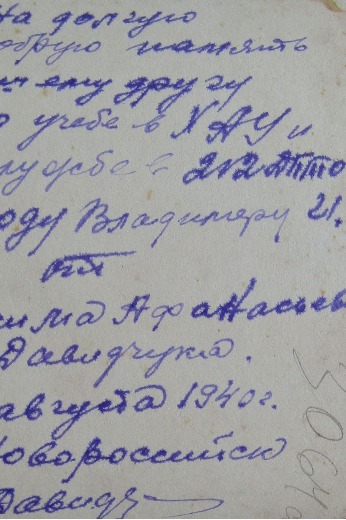 На долгую
обрую память
шему другу
о учебе в ХАУ и
лужбе в 212
оду Владимеру И.
от
сима Афанасьев
Давидчука.
августа 1940г.
Новороссийск
Давидч
3064